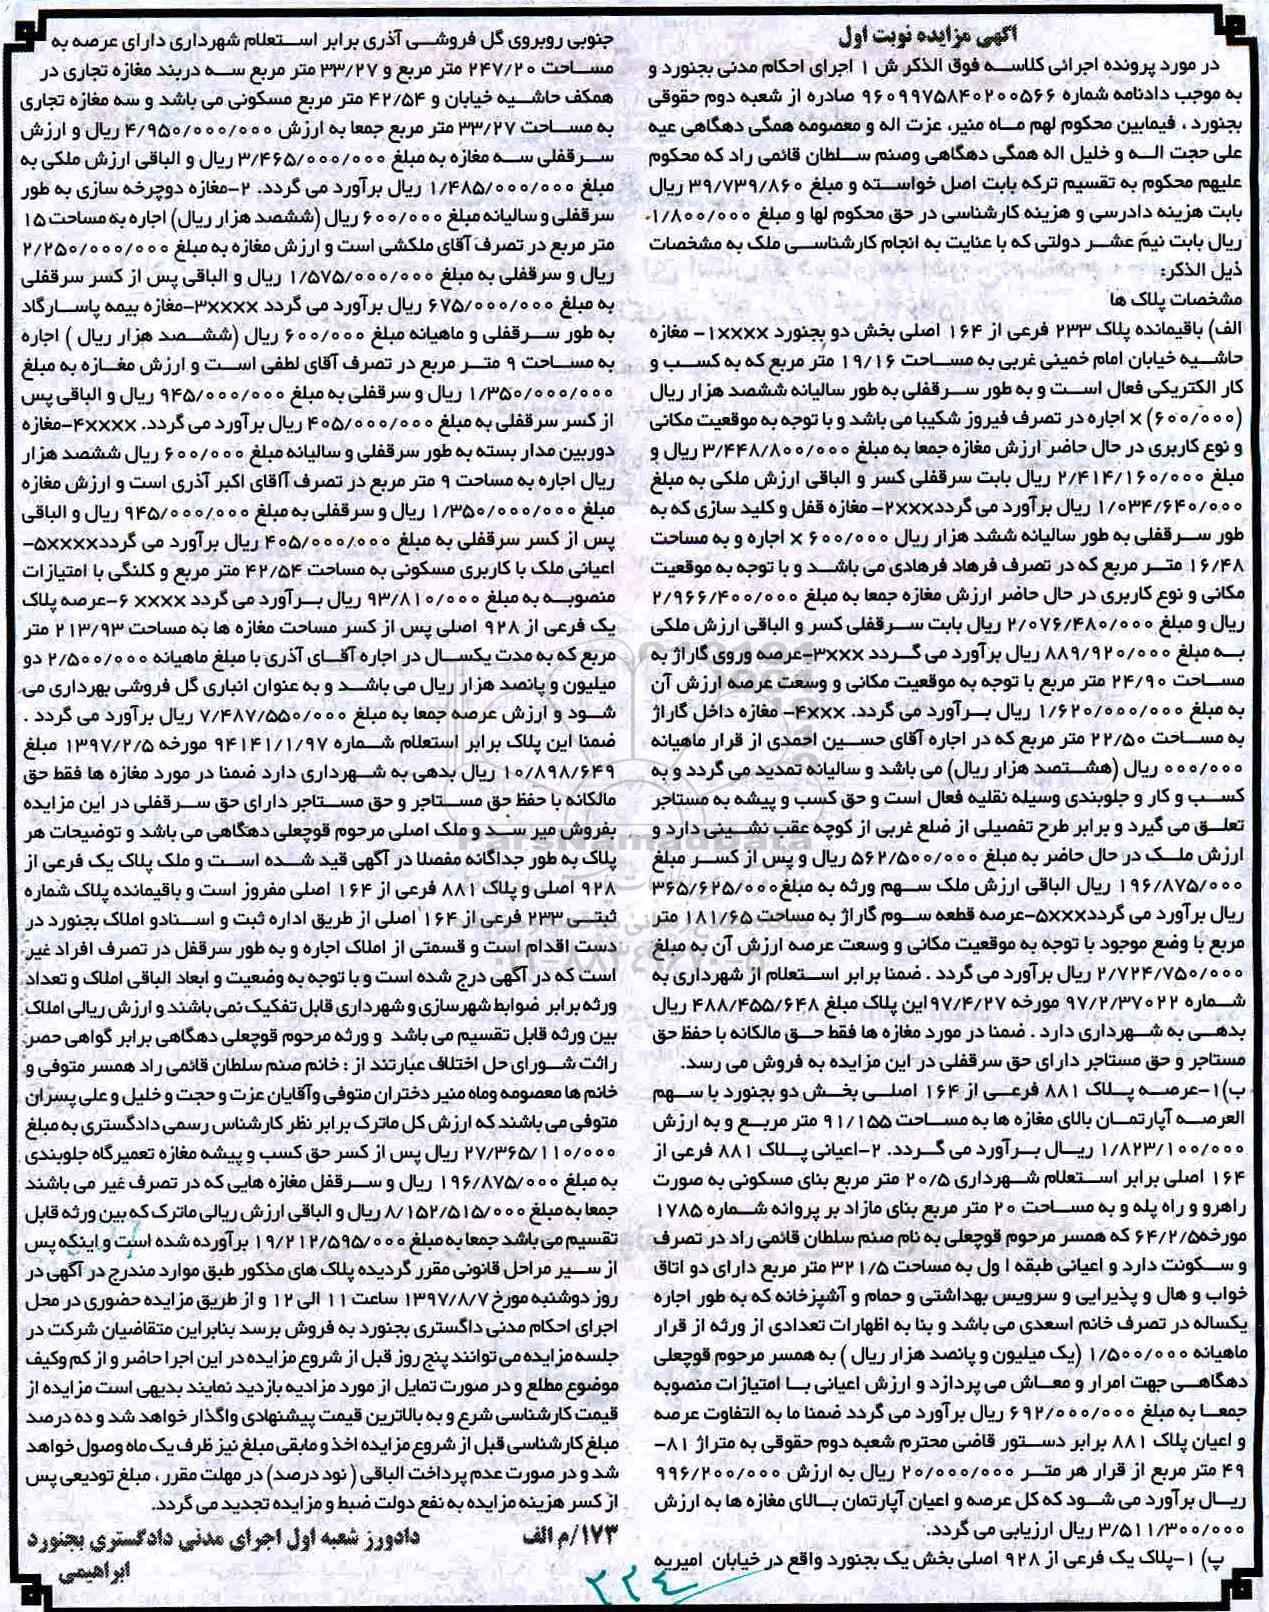 آگهی مزایده نوبت اول
در مورد پرونده اجرائی کلاسه فوق الذکر ش ۱ اجرای احکام مدنی بجنورد و
به موجب دادنامه شماره ۹۶۰۹۹۷۵۸۴۰۲۰۰۵۶۶ صادره از شعبه دوم حقوقی
بجنورد ، فیمابین محکوم لهم ماه منیر، عزت اله و معصومه همگی دهگاهی عیه
علی حجت اله و خلیل اله همگی دهگاهی وصنم سلطان قائمی راد که محکوم
علیهم محکوم به تقسیم ترکه بابت اصل خواسته و مبلغ ۳۹/۷۳۹/۸۶۰ ریال
بابت هزینه دادرسی و هزینه کارشناسی در حق محکوم لها و مبلغ ۱/۸۰۰/۰۰۰
ریال بابت نیم عشر دولتی که با عنایت به انجام کارشناسی ملک به مشخصات
ذیل الذکر:
مشخصات پلاک ها
الف) باقیمانده پلاک ۲۳۳ فرعی از ۱۶۴ اصلی بخش دو بجنورد ۱xxxx- مغازه
حاشیه خیابان امام خمینی غربی به مساحت ۱۹/۱۶ متر مربع که به کسب و
کار الکتریکی فعال است و به طور سرقفلی به طور سالیانه ششصد هزار ریال
(۶۰۰/۰۰۰) x اجاره در تصرف فیروز شکیبا می باشد و با توجه به موقعیت مکانی
و نوع کاربری در حال حاضر ارزش مغازه جمعا به مبلغ ۳/۴۴۸/۸۰۰/۰۰۰ ریال و
مبلغ ۲/۴۱۴/۱۶۰/۰۰۰ ریال بابت سرقفلی کسر و الباقی ارزش ملکی به مبلغ
۱/۰۳۴/۶۴۰/۰۰۰ ریال برآورد می گردد۲xxx- مغازه قفل و کلید سازی که به
طور سرقفلی به طور سالیانه ششد هزار ریال ۶۰۰/۰۰۰ x اجاره و به مساحت
۱۶/۴۸ متر مربع که در تصرف فرهاد فرهادی می باشد و با توجه به موقعیت
مکانی و نوع کاربری در حال حاضر ارزش مغازه جمعا به مبلغ ۲/۹۶۶/۴۰۰/۰۰۰
ریال و مبلغ ۲/۰۷۶/۴۸۰/۰۰۰ ریال بابت سرقفلی کسر و الباقی ارزش ملکی
به مبلغ ۸۸۹/۹۲۰/۰۰۰ ریال برآورد می گردد ۳xxx-عرصه وروی گاراژ به
مساحت ۲۴/۹۰ متر مربع با توجه به موقعیت مکانی و وسعت عرصه ارزش آن
به مبلغ ۱/۶۲۰/۰۰۰/۰۰۰ ریال برآورد می گردد. ۴xxx- مغازه داخل گاراژ
به مساحت ۲۲/۵۰ متر مربع که در اجاره آقای حسین احمدی از قرار ماهیانه
۰۰۰/۰۰۰ ریال (هشتصد هزار ریال) می باشد و سالیانه تمدید می گردد و به
کسب و کار و جلوبندی وسیله نقلیه فعال است و حق کسب و پیشه به مستاجر
تعلق می گیرد و برابر طرح تفصیلی از ضلع غربی از کوچه عقب نشینی دارد و
ارزش ملک در حال حاضر به مبلغ ۵۶۲/۵۰۰/۰۰۰ ریال و پس از کسر مبلغ
۱۹۶/۸۷۵/۰۰۰ ریال الباقی ارزش ملک سهم ورثه به مبلغ۳۶۵/۶۲۵/۰۰۰
ریال برآورد می گردد۵xxx-عرصه قطعه سوم گاراژ به مساحت ۱۸۱/۶۵ متر
مربع با وضع موجود با توجه به موقعیت مکانی و وسعت عرصه ارزش آن به مبلغ
۲/۷۲۴/۷۵۰/۰۰۰ ریال برآورد می گردد . ضمنا برابر استعلام از شهرداری به
شماره ۹۷/۲/۳۷۰۲۲ مورخه ۹۷/۴/۲۷این پلاک مبلغ ۴۸۸/۴۵۵/۶۴۸ ریال
بدهی به شهرداری دارد . ضمنا در مورد مغازه ها فقط حق مالکانه با حفظ حق
مستاجر و حق مستاجر دارای حق سرقفلی در این مزایده به فروش می رسد.
ب)۱-عرصه پلاک ۸۸۱ فرعی از ۱۶۴ اصلی بخش دو بجنورد با سهم
العرصه آپارتمان بالای مغازه ها به مساحت ۹۱/۱۵۵ متر مربع و به ارزش
۱/۸۲۳/۱۰۰/۰۰۰ ریال برآورد می گردد. ۲-اعیانی پلاک ۸۸۱ فرعی از
۱۶۴ اصلی برابر استعلام شهرداری ۲۰/۵ متر مربع بنای مسکونی به صورت
راهرو و راه پله و به مساحت ۲۰ متر مربع بنای مازاد بر پروانه شماره ۱۷۸۵
مورخه۶۴/۲/۵ که همسر مرحوم قوچعلی به نام صنم سلطان قائمی راد در تصرف
و سکونت دارد و اعیانی طبقه ا ول به مساحت ۳۲۱/۵ متر مربع دارای دو اتاق
خواب و هال و پذیرایی و سرویس بهداشتی و حمام و آشپزخانه که به طور اجاره
یکساله در تصرف خانم اسعدی می باشد و بنا به اظهارات تعدادی از ورثه از قرار
ماهیانه ۱/۵۰۰/۰۰۰ (یک میلیون و پانصد هزار ریال ) به همسر مرحوم قوچعلی
دهگاهی جهت امرار و معاش می پردازد و ارزش اعیانی با امتیازات منصوبه
جمعا به مبلغ ۶۹۲/۰۰۰/۰۰۰ ریال برآورد می گردد ضمنا ما به التفاوت عرصه
و اعیان پلاک ۸۸۱ برابر دستور قاضی محترم شعبه دوم حقوقی به متراژ ۸۱-
۴۹ متر مربع از قرار هر متر ۲۰/۰۰۰/۰۰۰ ریال به ارزش ۹۹۶/۲۰۰/۰۰۰
ریال برآورد می شود که کل عرصه و اعیان آپارتمان بالای مغازه ها به ارزش
۳/۵۱۱/۳۰۰/۰۰۰ ریال ارزیابی می گردد.
پ) ۱-پلاک یک فرعی از ۹۲۸ اصلی بخش یک بجنورد واقع در خیابان امیریه
جنوبی روبروی گل فروشی آذری برابر استعلام شهرداری دارای عرصه به
مساحت ۲۴۷/۲۰ متر مربع و ۳۳/۲۷ متر مربع سه دربند مغازه تجاری در
همکف حاشیه خیابان و ۴۲/۵۴ متر مربع مسکونی می باشد و سه مغازه تجاری
به مساحت ۳۳/۲۷ متر مربع جمعا به ارزش ۴/۹۵۰/۰۰۰/۰۰۰ ریال و ارزش
سرقفلی سه مغازه به مبلغ ۳/۴۶۵/۰۰۰/۰۰۰ ریال و الباقی ارزش ملکی به
مبلغ ۱/۴۸۵/۰۰۰/۰۰۰ ریال برآورد می گردد. ۲-مغازه دوچرخه سازی به طور
سرقفلی و سالیانه مبلغ ۶۰۰/۰۰۰ ریال (ششصد هزار ریال) اجاره به مساحت ۱۵
متر مربع در تصرف آقای ملکشی است و ارزش مغازه به مبلغ ۲/۲۵۰/۰۰۰/۰۰۰
ریال و سرقفلی به مبلغ ۱/۵۷۵/۰۰۰/۰۰۰ ریال و الباقی پس از کسر سرقفلی
به مبلغ ۶۷۵/۰۰۰/۰۰۰ ریال برآورد می گردد ۳xxxx-مغازه بیمه پاسارگاد
به طور سرقفلی و ماهیانه مبلغ ۶۰۰/۰۰۰ ریال (ششصد هزار ریال ) اجاره
به مساحت ۹ متر مربع در تصرف آقای لطفی است و ارزش مغازه به مبلغ
۱/۳۵۰/۰۰۰/۰۰۰ ریال و سرقفلی به مبلغ ۹۴۵/۰۰۰/۰۰۰ ریال و الباقی پس
از کسر سرقفلی به مبلغ ۴۰۵/۰۰۰/۰۰۰ ریال برآورد می گردد. ۴xxxx-مغازه
دوربین مدار بسته به طور سرقفلی و سالیانه مبلغ ۶۰۰/۰۰۰ ریال ششصد هزار
ریال اجاره به مساحت ۹ متر مربع در تصرف آاقای اکبر آذری است و ارزش مغازه
مبلغ ۱/۳۵۰/۰۰۰/۰۰۰ ریال و سرقفلی به مبلغ ۹۴۵/۰۰۰/۰۰۰ ریال و الباقی
پس از کسر سرقفلی به مبلغ ۴۰۵/۰۰۰/۰۰۰ ریال برآورد می گردد۵xxxx-
اعیانی ملک با کاربری مسکونی به مساحت ۴۲/۵۴ متر مربع و کلنگی با امتیازات
منصوبه به مبلغ ۹۳/۸۱۰/۰۰۰ ریال برآورد می گردد ۶ xxxx-عرصه پلاک
یک فرعی از ۹۲۸ اصلی پس از کسر مساحت مغازه ها به مساحت ۲۱۳/۹۳ متر
مربع که به مدت یکسال در اجاره آقای آذری با مبلغ ماهیانه ۲/۵۰۰/۰۰۰ دو
میلیون و پانصد هزار ریال می باشد و به عنوان انباری گل فروشی بهرداری می
شود و ارزش عرصه جمعا به مبلغ ۷/۴۸۷/۵۵۰/۰۰۰ ریال برآورد می گردد .
ضمنا این پلاک برابر استعلام شماره ۹۴۱۴۱/۱/۹۷ مورخه ۱۳۹۷/۲/۵ مبلغ
۱۰/۸۹۸/۶۴۹ ریال بدهی به شهرداری دارد ضمنا در مورد مغازه ها فقط حق
مالکانه با حفظ حق مستاجر و حق مستاجر دارای حق سرقفلی در این مزایده
بفروش میر سد و ملک اصلی مرحوم قوچعلی دهگاهی می باشد و توضیحات هر
پلاک به طور جداگانه مفصلا در آگهی قید شده است و ملک پلاک یک فرعی از
۹۲۸ اصلی و پلاک ۸۸۱ فرعی از ۱۶۴ اصلی مفروز است و باقیمانده پلاک شماره
ثبتی ۲۳۳ فرعی از ۱۶۴ اصلی از طریق اداره ثبت و اسنادو املاک بجنورد در
دست اقدام است و قسمتی از املاک اجاره و به طور سرقفل در تصرف افراد غیر
است که در آگهی درج شده است و با توجه به وضعیت و ابعاد الباقی املاک و تعداد
ورثه برابر ضوابط شهرسازی و شهرداری قابل تفکیک نمی باشند و ارزش ریالی املاک
بین ورثه قابل تقسیم می باشد و ورثه مرحوم قوچعلی دهگاهی برابر گواهی حصر
راثت شورای حل اختلاف عبارتند از : خانم صنم سلطان قائمی راد همسر متوفی و
خانم ها معصومه وماه منیر دختران متوفی وآقایان عزت و حجت و خلیل و علی پسران
متوفی می باشند که ارزش کل ماترک برابر نظر کارشناس رسمی دادگستری به مبلغ
۲۷/۳۶۵/۱۱۰/۰۰۰ ریال پس از کسر حق کسب و پیشه مغازه تعمیرگاه جلوبندی
به مبلغ ۱۹۶/۸۷۵/۰۰۰ ریال و سرقفل مغازه هایی که در تصرف غیر می باشند
جمعا به مبلغ ۸/۱۵۲/۵۱۵/۰۰۰ ریال و الباقی ارزش ریالی ماترک که بین ورثه قابل
تقسیم می باشد جمعا به مبلغ ۱۹/۲۱۲/۵۹۵/۰۰۰ برآورده شده است و اینکه پس
از سیر مراحل قانونی مقرر گردیده پلاک های مذکور طبق موارد مندرج در آگهی در
روز دوشنبه مورخ ۱۳۹۷/۸/۷ ساعت ۱۱ الی ۱۲ و از طریق مزایده حضوری در محل
اجرای احکام مدنی داگستری بجنورد به فروش برسد بنابراین متقاضیان شرکت در
جلسه مزایده می توانند پنج روز قبل از شروع مزایده در این اجرا حاضر و از کم وکیف
موضوع مطلع و در صورت تمایل از مورد مزادیه بازدید نمایند بدیهی است مزایده از
قیمت کارشناسی شرع و به بالاترین قیمت پیشنهادی واگذار خواهد شد و ده درصد
مبلغ کارشناسی قبل از شروع مزایده اخذ و مابقی مبلغ نیز ظرف یک ماه وصول خواهد
شد و در صورت عدم پرداخت الباقی ( نود درصد) در مهلت مقرر ، مبلغ تودیعی پس
از کسر هزینه مزایده به نفع دولت ضبط و مزایده تجدید می گردد.
۱۷۳/م الف دادورز شعبه اول اجرای مدنی دادگستری بجنورد
ابراهیمی
۲۲۴
ParsNamadData